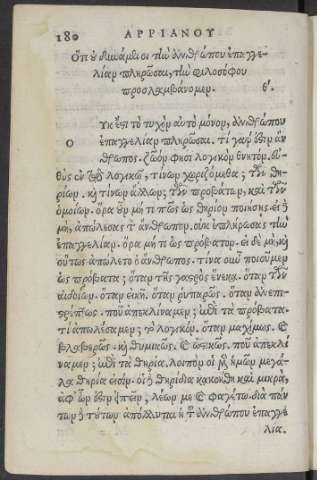 180 ΑΡΡΙΑΝΟΥ
Ὅτι οὐ δυνάμενοι τὴν ἀνθρώπου ἐπαγγε-
λίαν πληρῶσαι, τὴν φιλοσόφου
προσλαμβάνομεν. θ΄.
Ο ΥΚ ἔστι τὸ τυχὸν αὐτὸ μόνον, ἀνθρώπου
ἐπαγγελίαν πληρῶσαι. τί γάρ ἐστιν ἄν
θρωπος. ζῶον φησὶ λογικὸν θνητόν. εὐ-
θὺς ἐν τῷ λογικῷ, τίνων χωριζόμεθα; τῶν θη-
ρίων. καὶ τίνων ἄλλων; τῶν προβάτων, καὶ τῶν
ὁμοίων. ὅρα οὖν μή τι πῶς ὡς θηρίον ποιήσῃς· εἰ δὲ
μὴ, ἀπώλεσας τὸν ἄνθρωπον, οὐκ ἐπλήρωσας τὴν
ἐπαγγελίαν. ὅρα μή τι ὡς πρόβατον. εἰ δὲ μὴ, καὶ
οὕτως ἀπώλετο ὁ ἄνθρωπος. τίνα οὖν ποιοῦμεν
ὡς πρόβατα; ὅταν τῆς γαστρὸς ἕνεκα. ὅταν τῶν
αἰδοίων. ὅταν εἰκῆ. ὅταν ῥυπαρῶς. ὅταν ἀνεπι-
στρέπτως. ποῦ ἀπεκλίναμεν; ἐπὶ τὰ πρόβατα.
τί ἀπωλέσαμεν; τὸ λογικόν. ὅταν μαχίμως. καὶ
βλαβερῶς. καὶ θυμικῶς. καὶ ὠστικῶς. ποῦ ἀπεκλί
ναμεν; ἐπὶ τὰ θηρία. λοιπὸν οἱ μὲν ἡμῶν μεγά-
λα θηρία εἰσίν. οἱ δὲ θηρίδια κακοήθη καὶ μικρὰ,
ἀφ' ὧν ἔστιν εἰπεῖν, λέων με καὶ φαγέτω. διὰ πάν
των δὲ τούτων ἀπόλλυται ἡ τοῦ ἀνθρώπου ἐπαγγε
λία.